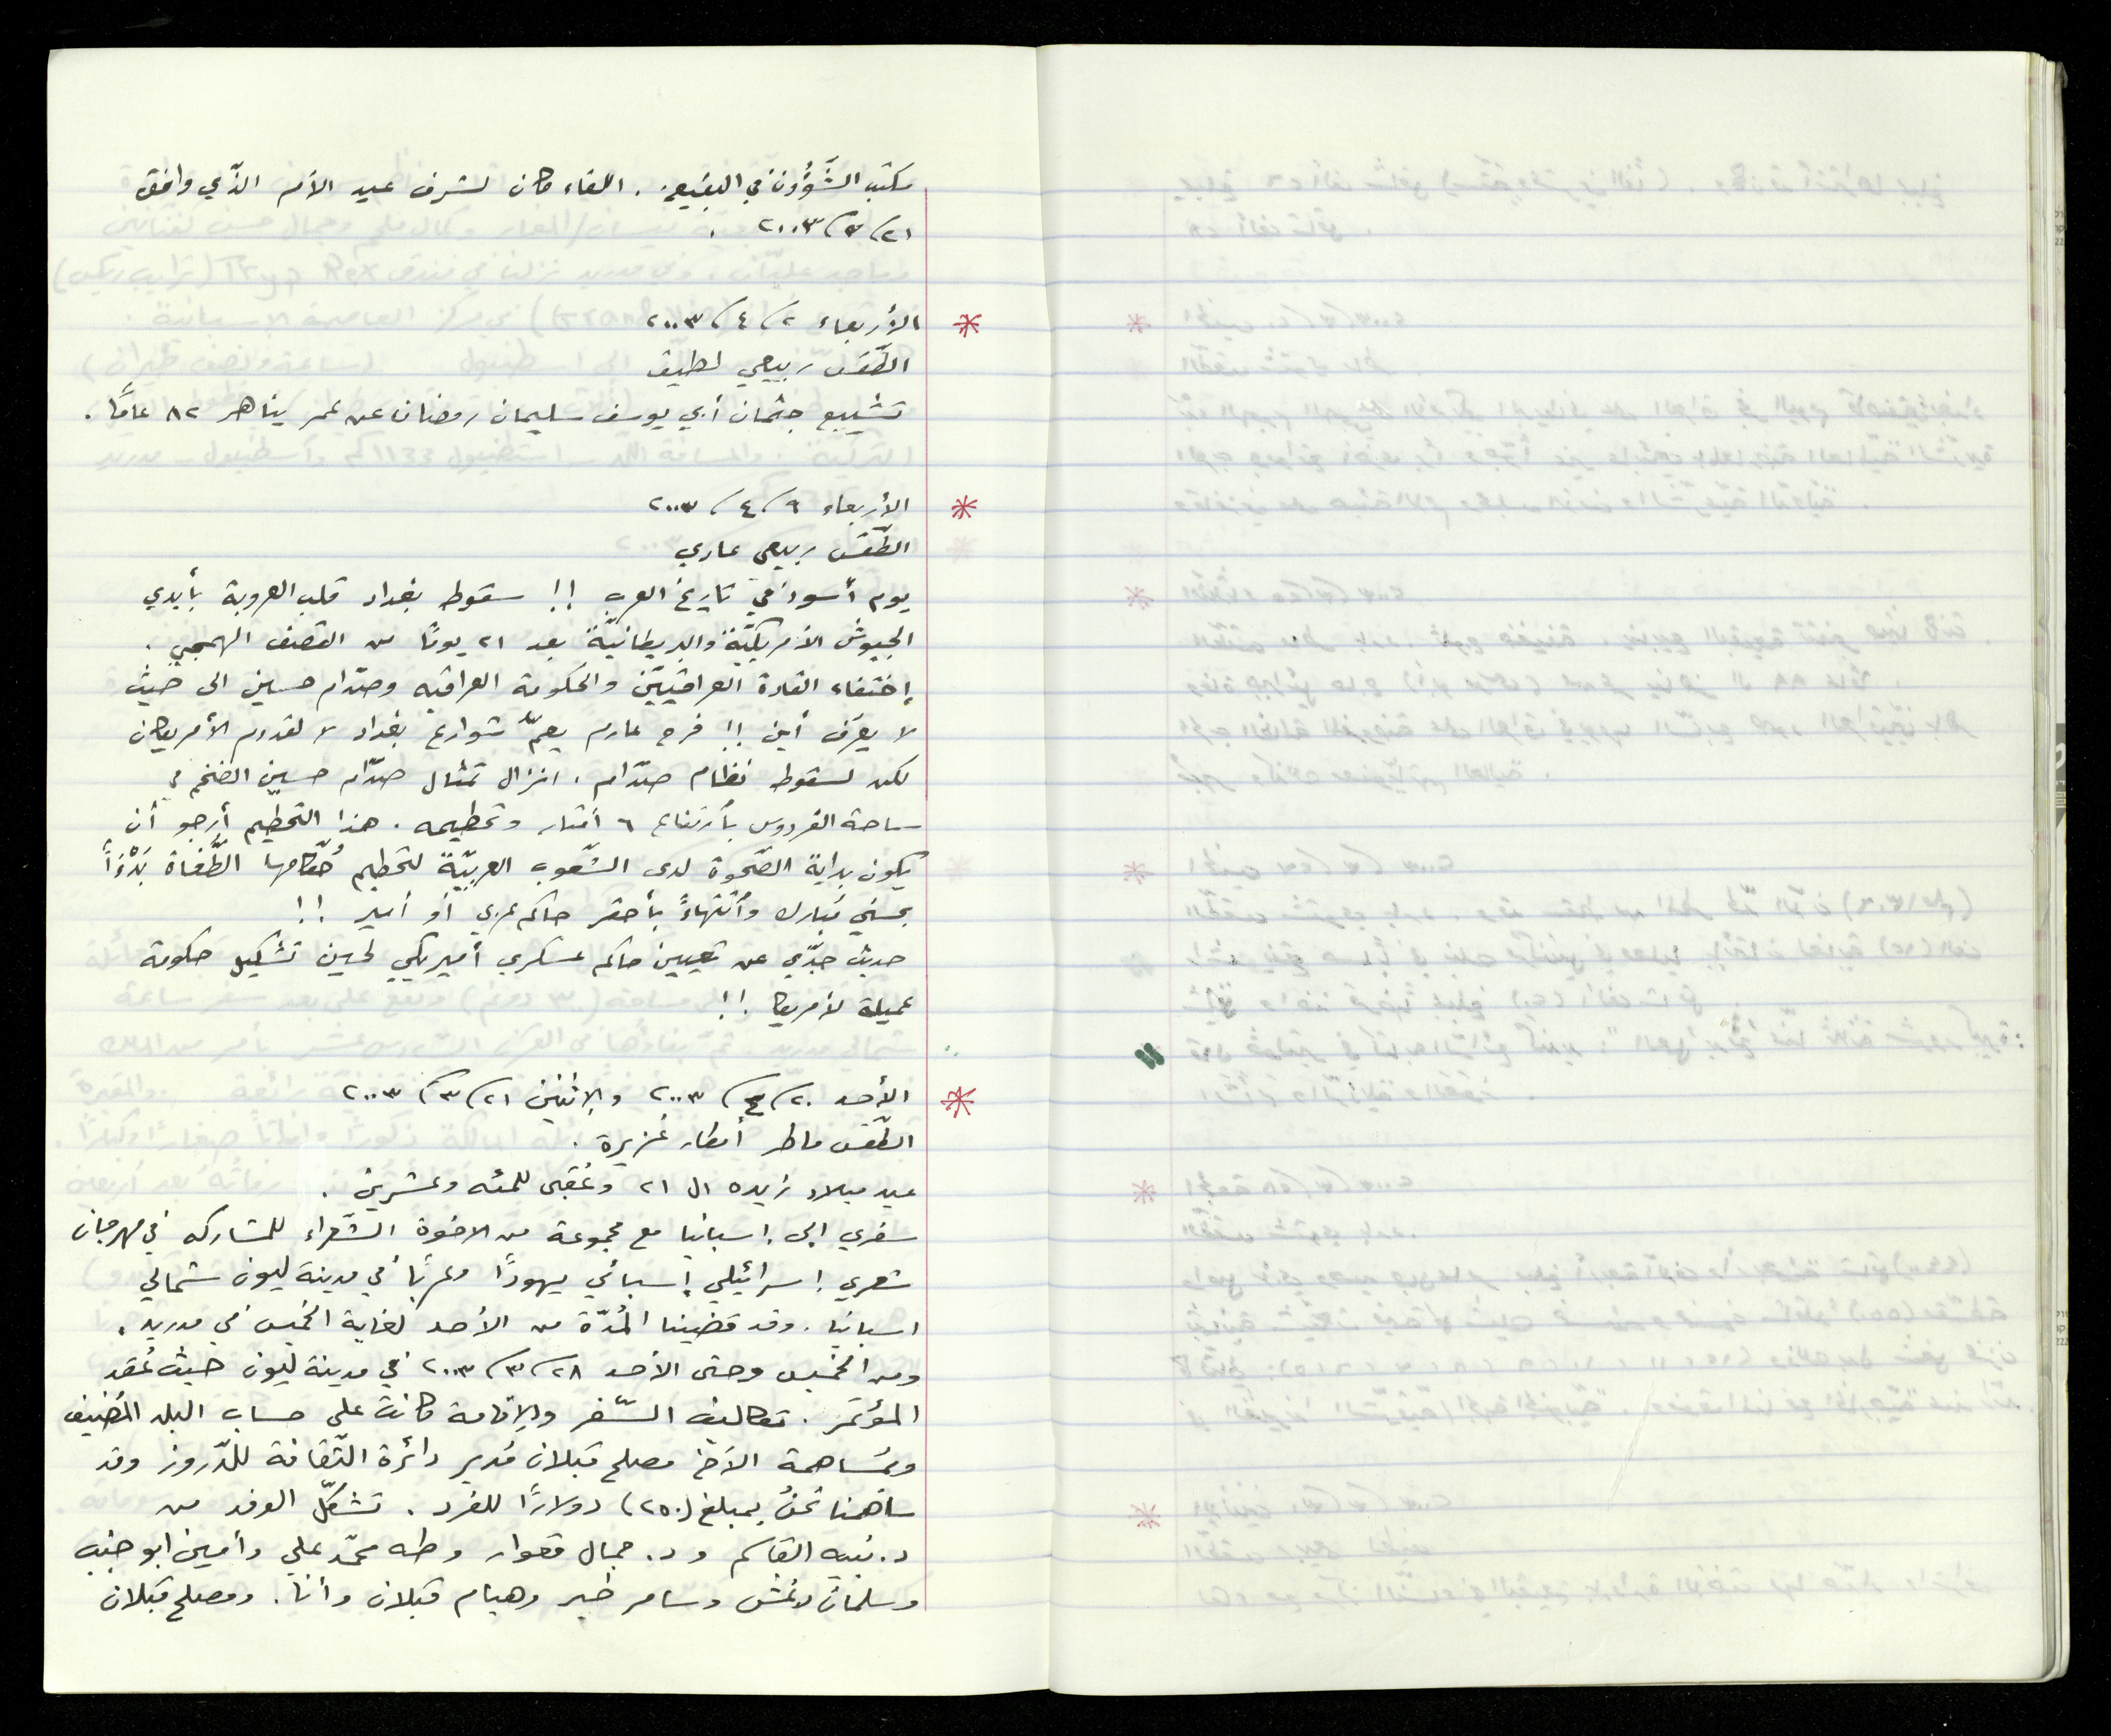 مكتب الشَّؤُون في البقيعة. اللقاء كان لشرف عيد الأم الذّي وافق
٢١/٣/٢٠٠٣.
* الأربعاء ٢/٤/٢٠٠٣
الطّقس ربيعي لطيف
تشييع جثمان أبي يوسف سليمان رمضان عن عمر يناهز ٨٢ عامًا.
* الأربعاء ٩/٤/٢٠٠٣
الطّقس ربيعي عادي
يوم أسود في تاريخ العرب !! سقوط بغداد قلب العروبة بأيدي
الجيوش الأمريكيّة والبريطانيّة بعد ٢١ يومًا من القصف الهمجي.
إختفاء القادة العراقييّن والحكومة العراقيه وصدّام حسين الى حيث
لا يعرف أين !! فرح عارم يعمّ شوارع بغداد لا لقدوم الأمريكان
لكن لسقوط نظام صدّام. انزال تمثال صدّام حسين الضخم في
ساحة الفردوس بأرتفاع ٦ أمتار وتحطيمه. هذا التحطيم أرجو أن
يكون بداية الصّحوة لدى الشّعوب العربيّة لتحطيم حُكّامها الطُّغاة بَدْءًا
بحسني مُبارك وأنتهاءً بأحقر حاكم عربي أو أمير !!
حديث جدّي عن تعيين حاكم عسكري أميريكي لحين تشكيل حكومة
عميلة لأمريكا !!
* الأحد ٢٠/٤/٢٠٠٣ والإثنين ٢١/٣/٢٠٠٣
الطّقس ماطر أمطار غزيرة.
عيد ميلاد زيده ال ٢١ وعُقبى للمئه وعشرين.
سفري إلى إسبانيا مع مجموعة من الاخوة الشّعراء للمشاركه في مهرجان
شعري إسرائيلي إسباني يهودًا وعربًا في مدينة ليون شمالي
اسبانيا. وقد قضينا المُدّة من الأحد لغاية الخميس في مدريد.
ومن الخميس وحتى الأحد ٢٨/٣/٢٠٠٣ في مدينة ليون حيث عُقد
المؤتمر. تكاليف السّفر والإقامة كانت على حساب البلد المُضيف
وبمساهمة الأخ مصلح قبلان مُدير دائرة الثّقافة للدّروز وقد
ساهمنا نحنُ بمبلغ (٢٥٠) دولارًا للفرد. تشكّل الوفد من
د. نبيه القاسم و د. جمال قعوار وطه محمّد علي وأمين ابو جنب
وسلمان دغش وسامر خير وهيام قبلان وأنا. ومصلح قبلان